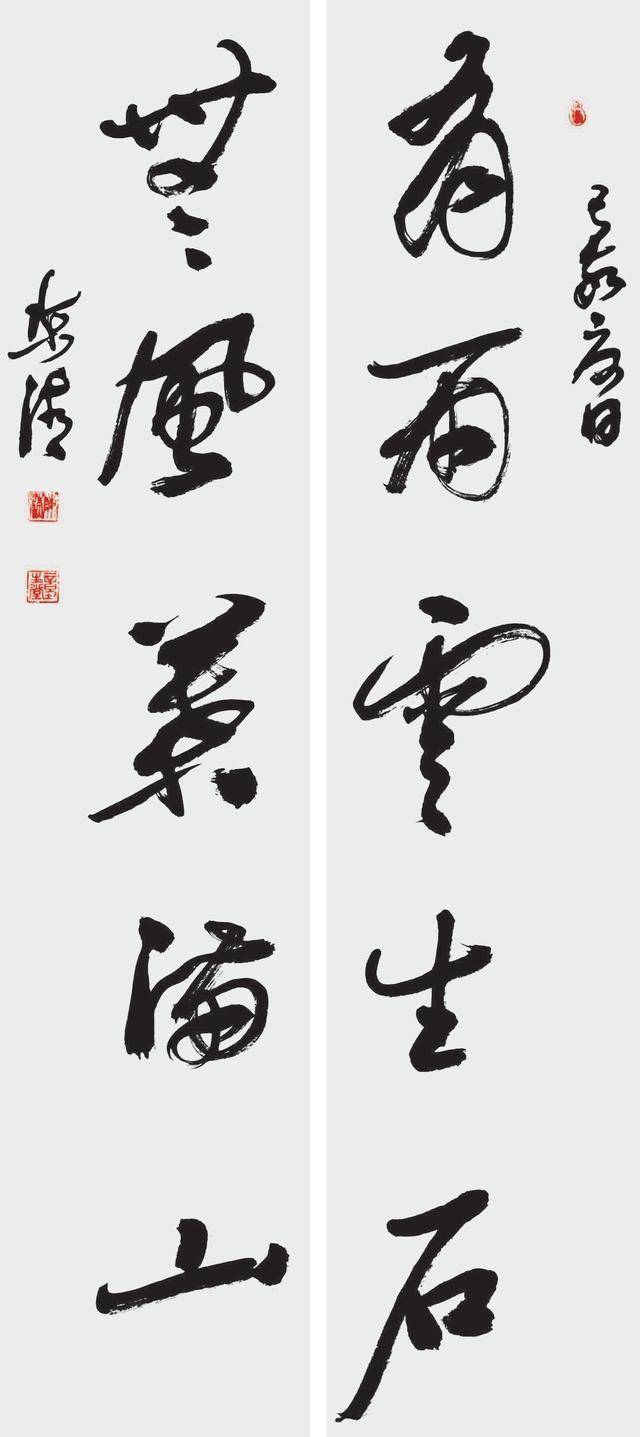 己亥夏日
有雨雲生石
無風葉滿山